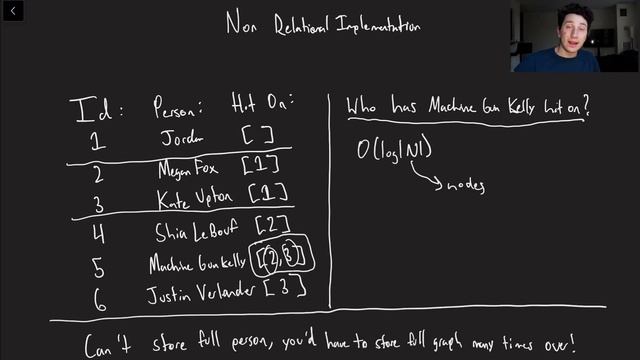 Non Relational Implementation
Id: Person: Hit On:
1 Jordan [ ]
2 Megan Fox [1]
3 Kate Upton [1]
4 Shia LeBouf [2]
5 Machine Gun Kelly [2,3]
6 Justin Verlander [3]
Who has Machine Gun Kelly hit on?
O(log|N|)
nodes
Can't store full person, you'd have to store full graph many times over!